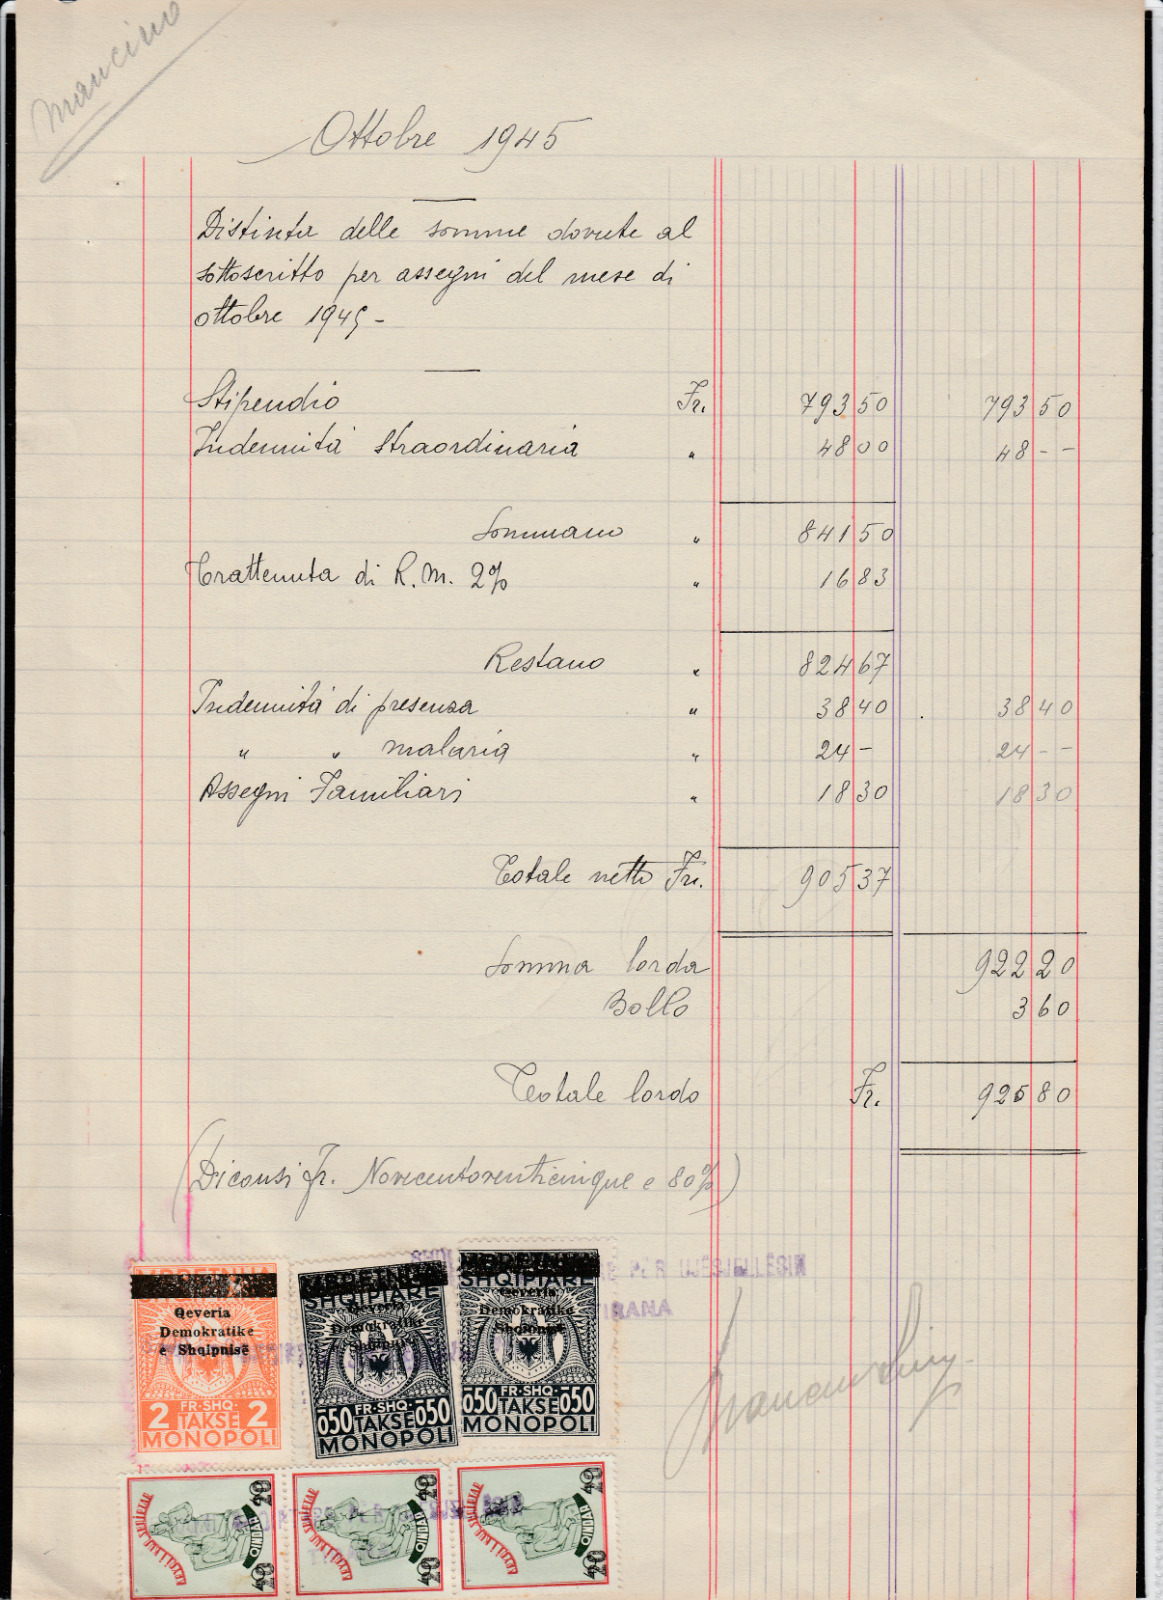 Mancino
Ottobre 1945
Distinta delle somme dovute al
sottoscritto per assegni del mese di
ottobre 1945 -
Stipendio Fr. 793 50 793 50
Indennità straordinaria " 48 00 48 - -
Sommano " 841 50
Trattenuta di R. M. 2% " 16 83
Restano " 824 67
Indennità di presenza " 38 40 38 40
" " malaria " 24 - 24 - -
Assegni Familiari " 18 30 18 30
Totale netto Fr. 905 37
Somma lorda 922 20
Bollo 3 60
Totale lordo Fr. 925 80
(Diconsi Fr. Novecentoventicinque e 80%)
TIRANA
Qeveria
Demokratike
e Shqipnisë
2 FR·SHQ· 2
TAKSE
MONOPOLI
SHQIPTARE
Qeveria
Demokratike
Shqipnisë
050 FR·SHQ· 050
TAKSE
MONOPOLI
SHQIPTARE
Qeveria
Demokratike
Shqipnisë
050 FR·SHQ· 050
TAKSE
MONOPOLI